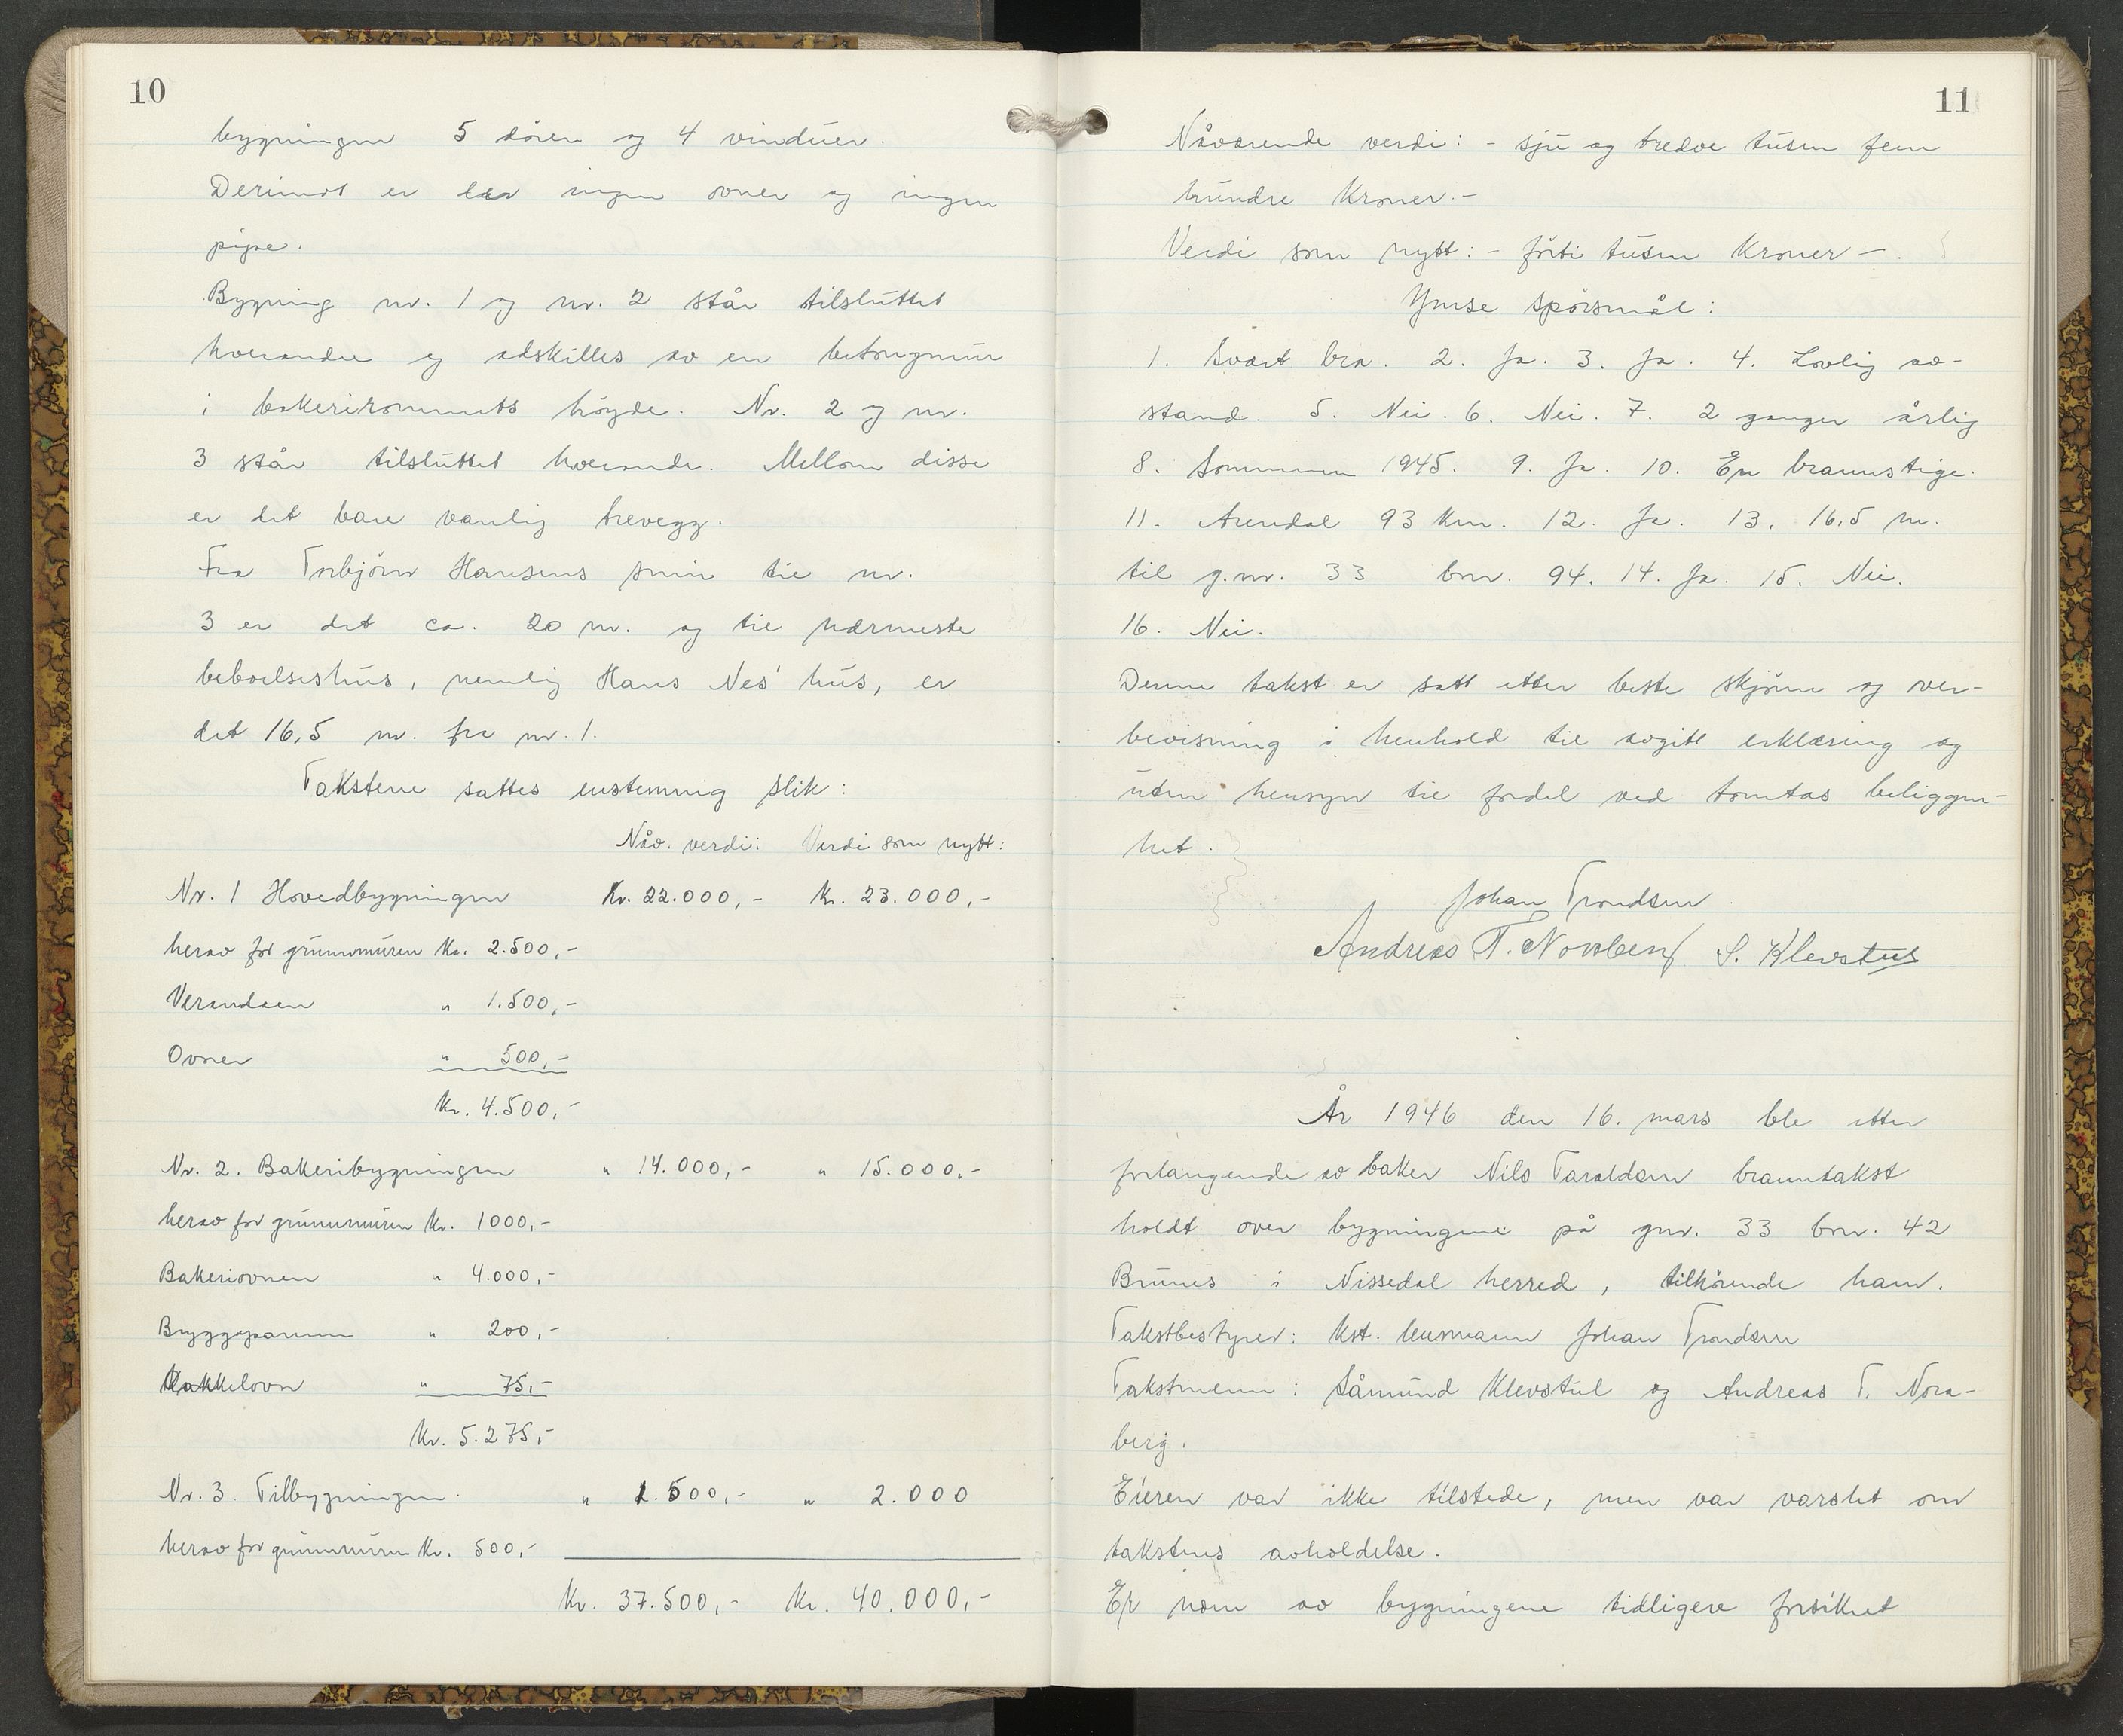 10
bygningen 5 dörer og 4 vinduer.
Derimot er der ingen ovner og ingen
pipe.
Bygning nr. 1 og nr. 2 står tilsluttet
hverandre og adskilles av en betongmur
i bakerirommets höyde. Nr. 2 og nr.
3 står tilsluttet hverande. Mellom disse
er det bare vanlig trevegg.
Fra Torbjörn Hansens smie til nr.
3 er det ca. 20 m. og til nærmeste
beboelseshus, nemlig Hans Nes' hus, er
det 16,5 m. fra nr. 1.
Takstene sattes enstemmig slik:
Nåv. verdi: Verdi som nytt:
Nr. 1 Hovedbygningen Kr. 22.000,- Kr. 23.000,-
herav for grunnmuren Kr. 2.500,-
Verandaen " 1.500,-
Ovner " 500,-
Kr. 4.500,-
Nr. 2. Bakeribygningen " 14.000,- " 15.000,-
herav for grunnmuren Kr. 1000,-
Bakeriovnen " 4.000,-
Bryggepannen " 200,-
Kakkelovn " 75,-
Kr. 5.275,-
Nr. 3. Tilbygningen " 1.500,- " 2.000
herav for grunnmuren Kr. 500,-
Kr. 37.500,- Kr. 40.000,-
11
Nåværende verdi: - sju og tredve tusen fem
hundre Kroner.-
Verdi som nytt: - förti tusen Kroner -.
Ymse spörsmål:
1. Svært bra. 2. Ja. 3. Ja. 4. Lovlig av-
stand. 5. Nei. 6. Nei. 7. 2 ganger årlig
8. Sommeren 1945. 9. Ja. 10. En brannstige.
11. Arendal 93 km. 12. Ja. 13. 16,5 m.
til g.nr. 33 bnr. 94. 14. Ja. 15. Nei.
16. Nei.
Denne takst er satt etter beste skjönn og over-
bevisning i henhold til avgitt erklæring og
uten hensyn til fordel ved tomtas beliggen-
het.
Johan Trondsen
Andreas T. Noraberg S. Klevstul
År 1946 den 16. mars ble etter
forlangende av baker Nils Taraldsen branntakst
holdt over bygningene på gnr. 33 bnr. 42
Brunes i Nissedal herred, tilhörende ham.
Takstbestyrer: Kst. lensmann Johan Trondsen
Takstmenn: Såmund Klevstul og Andreas T. Nora-
berg.
Eieren var ikke tilstede, men var varslet om
takstens avholdelse.
Er noen av bygningene tidligere forsikret